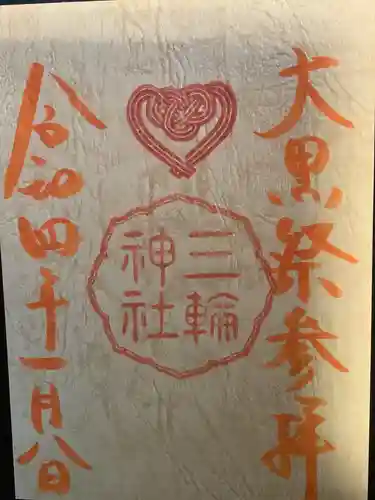 大黒祭参拝
三輪
神社
令和四年一月八日